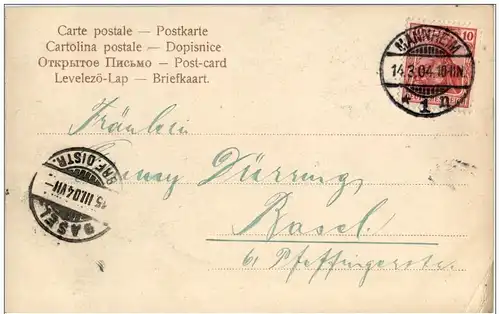 Carte postale — Postkarte
Cartolina postale — Dopisnice
Открытое Письмо — Post-card
Levelező-Lap — Briefkaart.
10
MANNHEIM
14.3.04.10-11N.
* 1 n
Fräulein
Dürring
Basel.
61 Pfeffingerstr.
BRF. DISTR.
15.III.04.VII—
BASEL